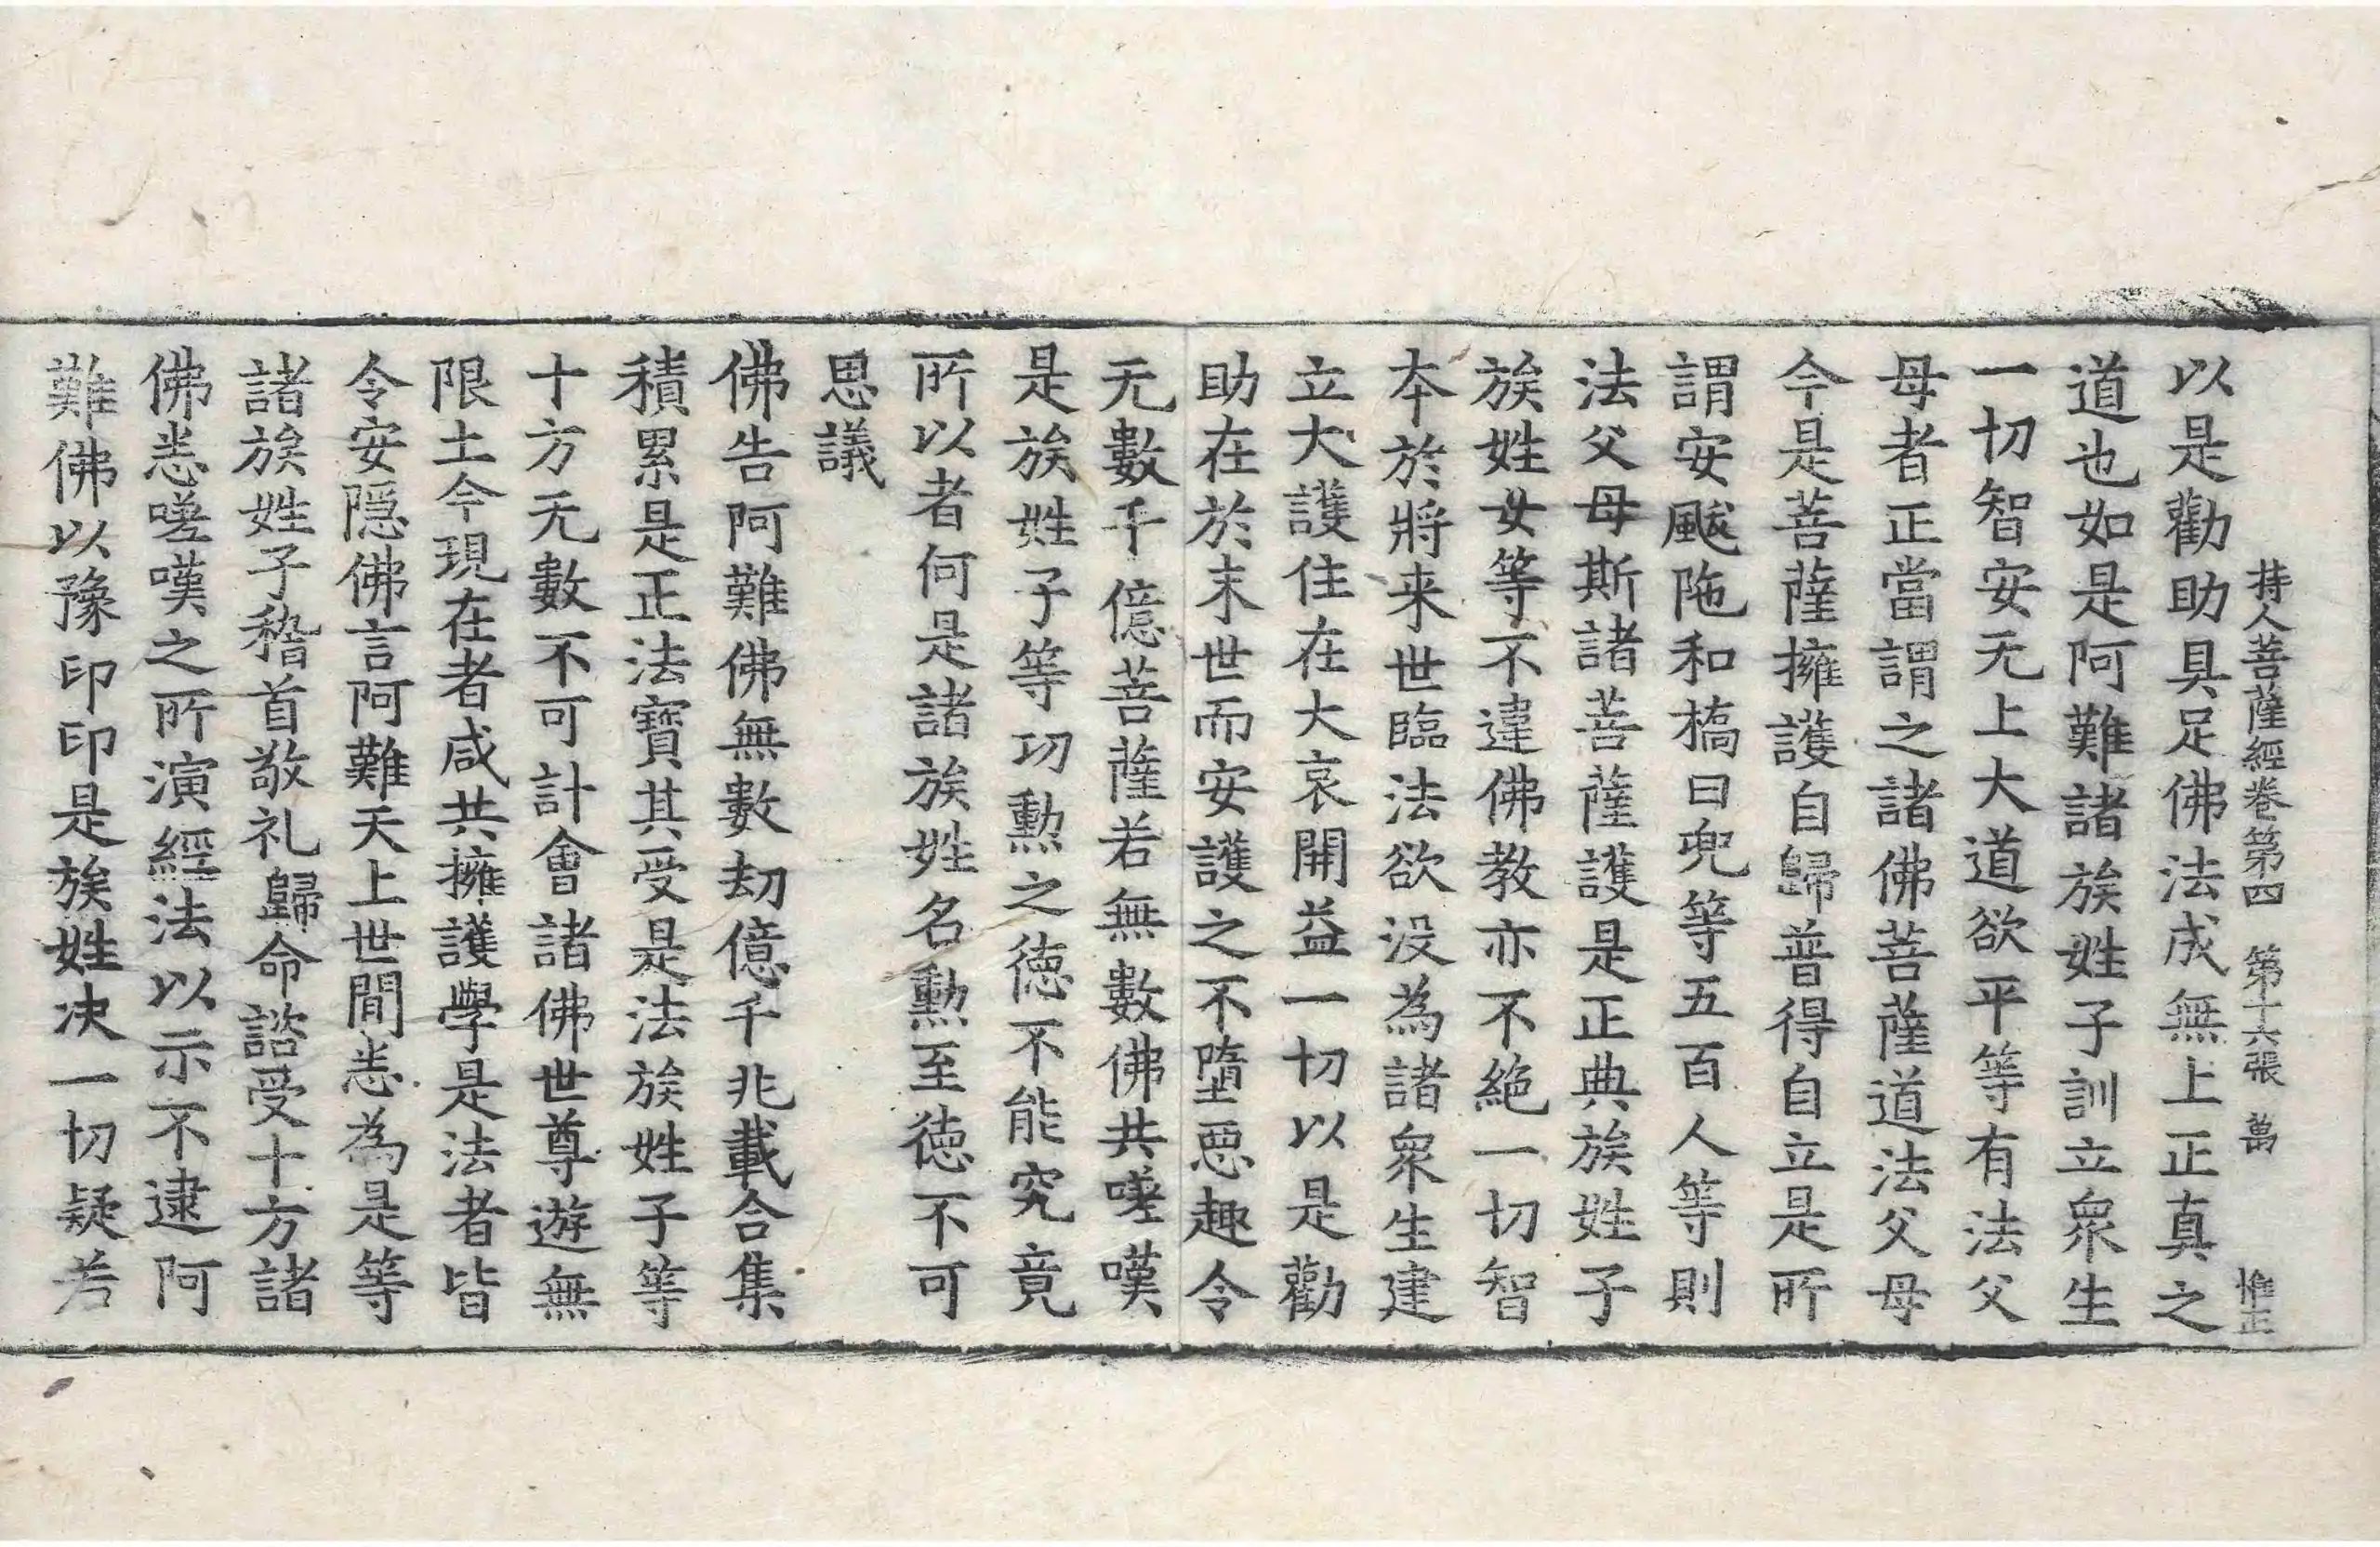 持人菩薩經卷第四　第十六張　萬　惟正
以是勸助具足佛法成無上正真之
道也如是阿難諸族姓子訓立衆生
一切智安无上大道欲平等有法父
母者正當謂之諸佛菩薩道法父母
今是菩薩擁護自歸普得自立是所
謂安颰陁和槗曰兜等五百人等則
法父母斯諸菩薩護是正典族姓子
族姓女等不違佛教亦不絶一切智
本於將来世臨法欲没為諸衆生建
立大護住在大哀開益一切以是勸
助在於末世而安護之不墮惡趣令
无數千億菩薩若無數佛共嗟嘆
是族姓子等功勲之德不能究竟
所以者何是諸族姓名勲至德不可
思議
佛告阿難佛無數劫億千兆載合集
積累是正法寶其受是法族姓子等
十方无數不可計會諸佛世尊遊無
限土今現在者咸共擁護學是法者皆
令安隱佛言阿難天上世間恙為是等
諸族姓子稽首敬礼歸命諮受十方諸
佛恙嗟嘆之所演經法以示不逮阿
難佛以豫印印是族姓决一切疑若